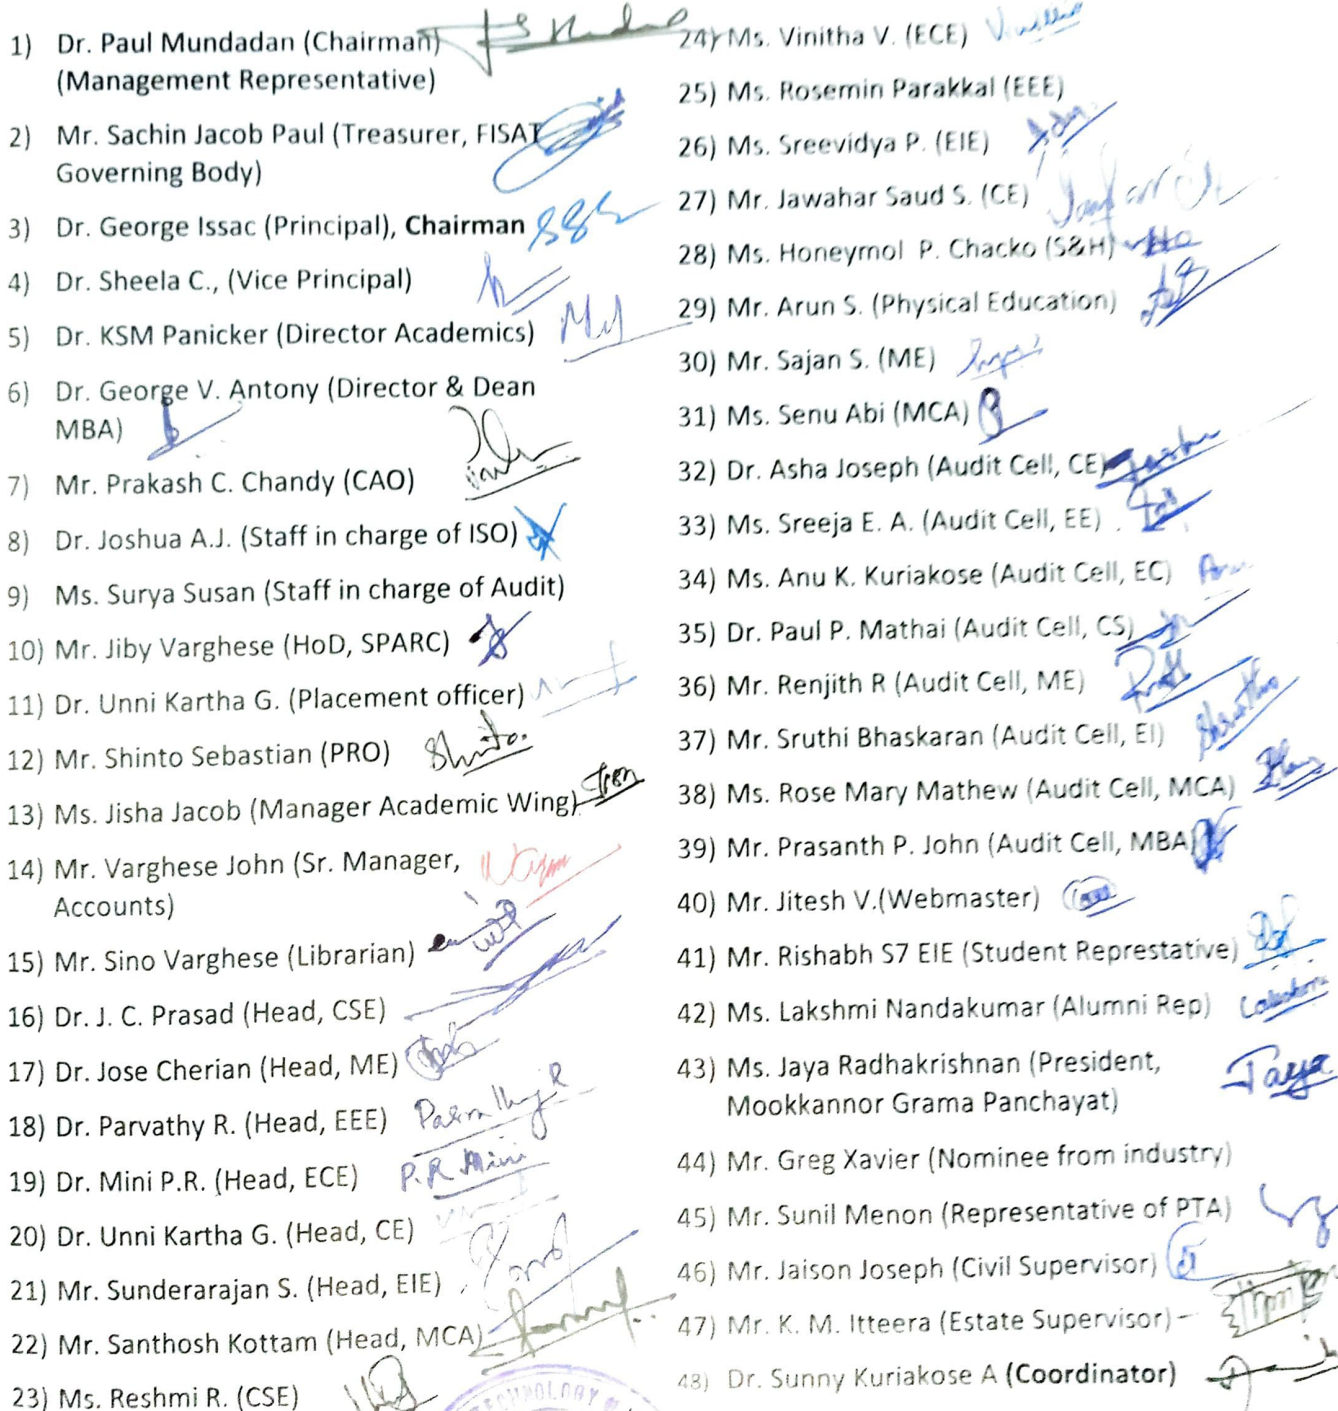 1) Dr. Paul Mundadan (Chairman)
(Management Representative)
2) Mr. Sachin Jacob Paul (Treasurer, FISAT
Governing Body)
3) Dr. George Issac (Principal), Chairman
4) Dr. Sheela C., (Vice Principal)
5) Dr. KSM Panicker (Director Academics)
6) Dr. George V. Antony (Director & Dean
MBA)
7) Mr. Prakash C. Chandy (CAO)
8) Dr. Joshua A.J. (Staff in charge of ISO)
9) Ms. Surya Susan (Staff in charge of Audit)
10) Mr. Jiby Varghese (HoD, SPARC)
11) Dr. Unni Kartha G. (Placement officer)
12) Mr. Shinto Sebastian (PRO) Shinto.
13) Ms. Jisha Jacob (Manager Academic Wing)
14) Mr. Varghese John (Sr. Manager,
Accounts)
15) Mr. Sino Varghese (Librarian)
16) Dr. J. C. Prasad (Head, CSE)
17) Dr. Jose Cherian (Head, ME)
18) Dr. Parvathy R. (Head, EEE)
19) Dr. Mini P.R. (Head, ECE) P.R Mini
20) Dr. Unni Kartha G. (Head, CE)
21) Mr. Sunderarajan S. (Head, EIE)
22) Mr. Santhosh Kottam (Head, MCA)
23) Ms. Reshmi R. (CSE)
24) Ms. Vinitha V. (ECE)
25) Ms. Rosemin Parakkal (EEE)
26) Ms. Sreevidya P. (EIE)
27) Mr. Jawahar Saud S. (CE)
28) Ms. Honeymol P. Chacko (S&H)
29) Mr. Arun S. (Physical Education)
30) Mr. Sajan S. (ME)
31) Ms. Senu Abi (MCA)
32) Dr. Asha Joseph (Audit Cell, CE)
33) Ms. Sreeja E. A. (Audit Cell, EE)
34) Ms. Anu K. Kuriakose (Audit Cell, EC)
35) Dr. Paul P. Mathai (Audit Cell, CS)
36) Mr. Renjith R (Audit Cell, ME)
37) Mr. Sruthi Bhaskaran (Audit Cell, EI)
38) Ms. Rose Mary Mathew (Audit Cell, MCA)
39) Mr. Prasanth P. John (Audit Cell, MBA)
40) Mr. Jitesh V.(Webmaster)
41) Mr. Rishabh S7 EIE (Student Represtative)
42) Ms. Lakshmi Nandakumar (Alumni Rep)
43) Ms. Jaya Radhakrishnan (President, Jaya
Mookkannor Grama Panchayat)
44) Mr. Greg Xavier (Nominee from industry)
45) Mr. Sunil Menon (Representative of PTA)
46) Mr. Jaison Joseph (Civil Supervisor)
47) Mr. K. M. Itteera (Estate Supervisor)
48) Dr. Sunny Kuriakose A (Coordinator)